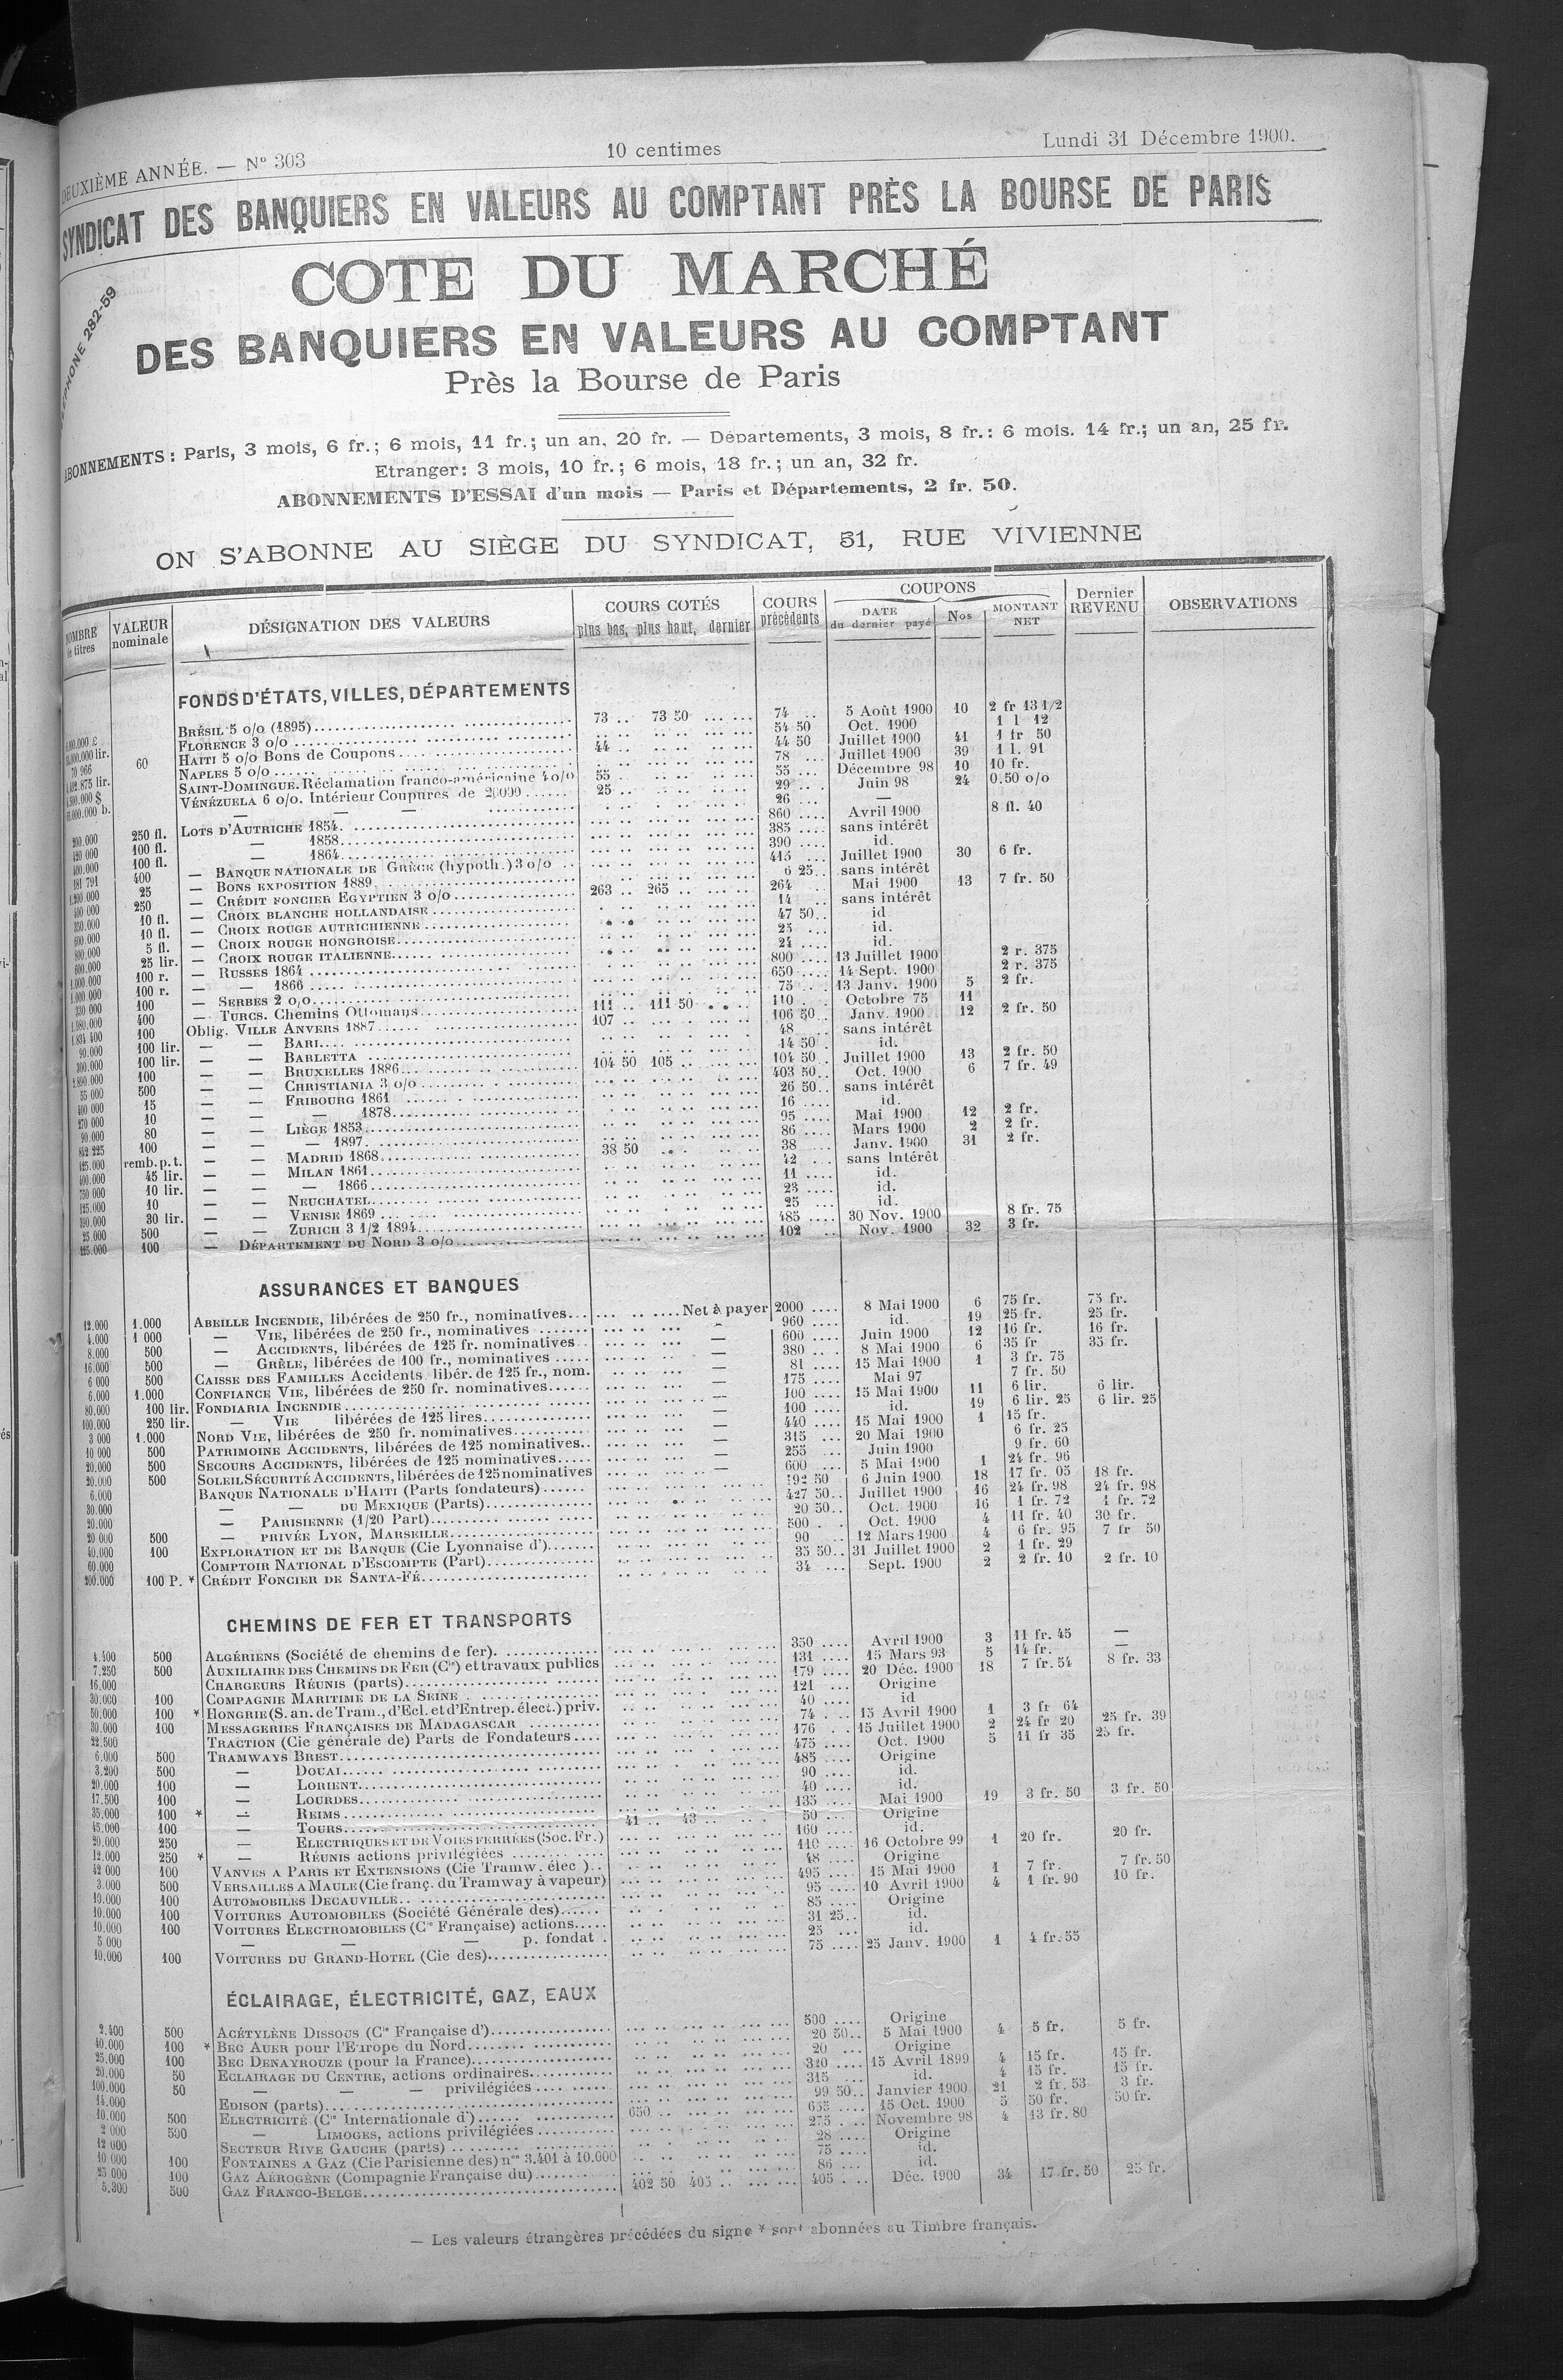 DEUXIÈME ANNÉE. — Nº 303 10 centimes Lundi 31 Décembre 1900.
SYNDICAT DES BANQUIERS EN VALEURS AU COMPTANT PRÈS LA BOURSE DE PARIS
COTE DU MARCHÉ
DES BANQUIERS EN VALEURS AU COMPTANT
Près la Bourse de Paris
282-59
ABONNEMENTS : Paris, 3 mois, 6 fr.; 6 mois, 11 fr.; un an, 20 fr. — Départements, 3 mois, 8 fr.: 6 mois. 14 fr.; un an, 25 fr.
Etranger: 3 mois, 10 fr.; 6 mois, 18 fr.; un an, 32 fr.
ABONNEMENTS D'ESSAI d'un mois — Paris et Départements, 2 fr. 50.
ON S'ABONNE AU SIÈGE DU SYNDICAT, 31, RUE VIVIENNE
NOMBRE de titres VALEUR nominale DÉSIGNATION DES VALEURS COURS COTÉS plus bas, plus haut, dernier COURS précédents COUPONS DATE du dernier payé Nos MONTANT NET Dernier REVENU OBSERVATIONS
FONDS D'ÉTATS, VILLES, DÉPARTEMENTS
BRÉSIL 5 o/o (1895) 73 .. 73 50 74 5 Août 1900 10 2 fr 13 1/2
FLORENCE 3 o/o 54 50 Oct. 1900 1 l 12
60 HAITI 5 o/o Bons de Coupons 44 .. 44 50 Juillet 1900 41 1 fr 50
NAPLES 5 o/o 78 Juillet 1900 39 1 l. 91
SAINT-DOMINGUE. Réclamation franco-américaine 4 o/o 55 55 Décembre 98 10 10 fr.
VÉNÉZUELA 6 o/o. Intérieur Coupures de 20000 25 .. 29 Juin 98 24 0.50 o/o
— — — 26 —
200.000 250 fl. LOTS D'AUTRICHE 1854 860 Avril 1900 8 fl. 40
120 000 100 fl. — 1858 385 sans intérêt
400.000 100 fl. — 1864 390 id.
181 791 400 — BANQUE NATIONALE DE GRÈCE (hypoth.) 3 o/o 415 Juillet 1900 30 6 fr.
1.200.000 25 — BONS EXPOSITION 1889 6 25 sans intérêt
400 000 250 — CRÉDIT FONCIER EGYPTIEN 3 o/o 263 .. 265 264 Mai 1900 13 7 fr. 50
10 fl. — CROIX BLANCHE HOLLANDAISE 14 sans intérêt
600.000 10 fl. — CROIX ROUGE AUTRICHIENNE 47 50 id.
800.000 5 fl. — CROIX ROUGE HONGROISE 25 id.
600.000 25 lir. — CROIX ROUGE ITALIENNE 24 id.
1.000.000 100 r. — RUSSES 1864 800 13 Juillet 1900 2 r. 375
1.000 000 100 r. — — 1866 650 14 Sept. 1900 2 r. 375
330 000 100 — SERBES 2 o/o 75 13 Janv. 1900 5 2 fr.
1.980.000 400 — TURCS. Chemins Ottomans 111 .. 111 50 110 Octobre 75 11
100 Oblig. VILLE ANVERS 1887 107 .. 106 50 Janv. 1900 12 2 fr. 50
90.000 100 lir. — — BARI 48 sans intérêt
300.000 100 lir. — — BARLETTA 14 50 id.
2.890 000 100 — — BRUXELLES 1886 104 50 105 104 50 Juillet 1900 13 2 fr. 50
55 000 500 — — CHRISTIANIA 3 o/o 403 50 Oct. 1900 6 7 fr. 49
400 000 15 — — FRIBOURG 1861 26 50 sans intérêt
270 000 10 — — — 1878 16 id.
90.000 80 — — LIÈGE 1853 95 Mai 1900 12 2 fr.
812 225 100 — — — 1897 86 Mars 1900 2 2 fr.
125.000 remb. p. t. — — MADRID 1868 38 50 38 Janv. 1900 31 2 fr.
400.000 45 lir. — — MILAN 1861 42 sans Intérêt
750 000 10 lir. — — — 1866 11 id.
125.000 10 — — NEUCHATEL 23 id.
30 lir. — — VENISE 1869 25 id.
25.000 500 — — ZURICH 3 1/2 1894 485 30 Nov. 1900 8 fr. 75
125.000 100 — DÉPARTEMENT DU NORD 3 o/o 102 Nov. 1900 32 3 fr.
ASSURANCES ET BANQUES
12.000 1.000 ABEILLE INCENDIE, libérées de 250 fr., nominatives Net à payer 2000 8 Mai 1900 6 75 fr. 75 fr.
4.000 1 000 — VIE, libérées de 250 fr., nominatives — 960 id. 19 25 fr. 25 fr.
8.000 500 — ACCIDENTS, libérées de 125 fr. nominatives — 600 Juin 1900 12 16 fr. 16 fr.
16.000 500 — GRÊLE, libérées de 100 fr., nominatives — 380 8 Mai 1900 6 35 fr 35 fr.
6 000 500 CAISSE DES FAMILLES Accidents, libér. de 125 fr., nom. — 81 15 Mai 1900 1 3 fr. 75
6.000 1.000 CONFIANCE VIE, libérées de 250 fr. nominatives — 175 Mai 97 7 fr. 50
80.000 100 lir. FONDIARIA INCENDIE — 100 15 Mai 1900 11 6 lir. 6 lir.
100.000 250 lir. — VIE libérées de 125 lires — 100 id. 19 6 lir. 25 6 lir. 25
3 000 1.000 NORD VIE, libérées de 250 fr. nominatives — 440 15 Mai 1900 1 15 fr.
10 000 500 PATRIMOINE ACCIDENTS, libérées de 125 nominatives — 315 20 Mai 1900 6 fr. 25
20.000 500 SECOURS ACCIDENTS, libérées de 125 nominatives — 255 Juin 1900 9 fr. 60
20.000 500 SOLEIL SÉCURITÉ ACCIDENTS, libérées de 125 nominatives — 600 5 Mai 1900 1 24 fr. 96
6.000 BANQUE NATIONALE D'HAITI (Parts fondateurs) 192 50 6 Juin 1900 18 17 fr. 05 18 fr.
30.000 — — DU MEXIQUE (Parts) 427 50 Juillet 1900 16 24 fr. 98 24 fr. 98
20.000 — PARISIENNE (1/20 Part) 20 50 Oct. 1900 16 1 fr. 72 1 fr. 72
20 000 500 — PRIVÉE LYON, MARSEILLE 500 Oct. 1900 4 11 fr. 40 30 fr.
40.000 100 EXPLORATION ET DE BANQUE (Cie Lyonnaise d') 90 12 Mars 1900 4 6 fr. 95 7 fr 50
60.000 COMPTOIR NATIONAL D'ESCOMPTE (Part) 35 50 31 Juillet 1900 2 1 fr. 29
200.000 100 P. * CRÉDIT FONCIER DE SANTA-FÉ 34 Sept. 1900 2 2 fr. 10 2 fr. 10
CHEMINS DE FER ET TRANSPORTS
4.400 500 ALGÉRIENS (Société de chemins de fer) 350 Avril 1900 3 11 fr. 45 —
7.250 500 AUXILIAIRE DES CHEMINS DE FER (Cie) et travaux publics 131 15 Mars 93 5 14 fr. —
16.000 CHARGEURS RÉUNIS (parts) 179 20 Déc. 1900 18 7 fr. 54 8 fr. 33
30.000 100 COMPAGNIE MARITIME DE LA SEINE 121 Origine
50.000 100 * HONGRIE (S. an. de Tram., d'Ecl. et d'Entrep. élect.) priv. 40 id
30.000 100 MESSAGERIES FRANÇAISES DE MADAGASCAR 74 15 Avril 1900 1 3 fr 64
22.500 TRACTION (Cie générale de) Parts de Fondateurs 176 15 Juillet 1900 2 24 fr 20 25 fr. 39
6.000 500 TRAMWAYS BREST 475 Oct. 1900 5 11 fr 35 25 fr.
3.200 500 — DOUAI 485 Origine
20.000 100 — LORIENT 90 id.
17.500 100 — LOURDES 40 id.
35.000 100 * — REIMS 135 Mai 1900 19 3 fr. 50 3 fr. 50
45.000 100 — TOURS 41 .. 43 50 Origine
20.000 250 — ELECTRIQUES ET DE VOIES FERRÉES (Soc. Fr.) 160 id.
12.000 250 * — RÉUNIS actions privilégiées 110 16 Octobre 99 1 20 fr. 20 fr.
42 000 100 VANVES A PARIS ET EXTENSIONS (Cie Tramw. élec ) 48 Origine
3.000 500 VERSAILLES A MAULE (Cie franç. du Tramway à vapeur) 495 15 Mai 1900 1 7 fr. 7 fr. 50
10.000 100 AUTOMOBILES DECAUVILLE 95 10 Avril 1900 4 1 fr. 90 10 fr.
10.000 100 VOITURES AUTOMOBILES (Société Générale des) 85 Origine
10.000 100 VOITURES ELECTROMOBILES (Cie Française) actions 31 25 id.
5.000 — — — p. fondat 25 id.
10.000 100 VOITURES DU GRAND-HOTEL (Cie des) 75 25 Janv. 1900 1 4 fr. 55
ÉCLAIRAGE, ÉLECTRICITÉ, GAZ, EAUX
2.400 500 ACÉTYLÈNE DISSOUS (Cie Française d') 500 Origine
40.000 100 * BEC AUER pour l'Europe du Nord 20 50 5 Mai 1900 4 5 fr. 5 fr.
25.000 100 BEC DENAYROUZE (pour la France) 20 Origine
20.000 50 ECLAIRAGE DU CENTRE, actions ordinaires 320 15 Avril 1899 4 15 fr. 15 fr.
100.000 50 — — — privilégiées 315 id. 4 15 fr. 15 fr.
14.000 EDISON (parts) 99 50 Janvier 1900 21 2 fr. 53 3 fr.
10.000 500 ELECTRICITÉ (Cie Internationale d') 650 655 15 Oct. 1900 5 50 fr. 50 fr.
2 000 500 — LIMOGES, actions privilégiées 275 Novembre 98 4 13 fr. 80
12 000 SECTEUR RIVE GAUCHE (parts) 28 Origine
10.000 100 FONTAINES A GAZ (Cie Parisienne des) nos 3.401 à 10.000 75 id.
25 000 100 GAZ AÉROGÈNE (Compagnie Française du) 86 id.
5.300 500 GAZ FRANCO-BELGE 402 50 405 405 Déc. 1900 34 17 fr. 50 25 fr.
— Les valeurs étrangères précédées du signe * sont abonnées au Timbre français.